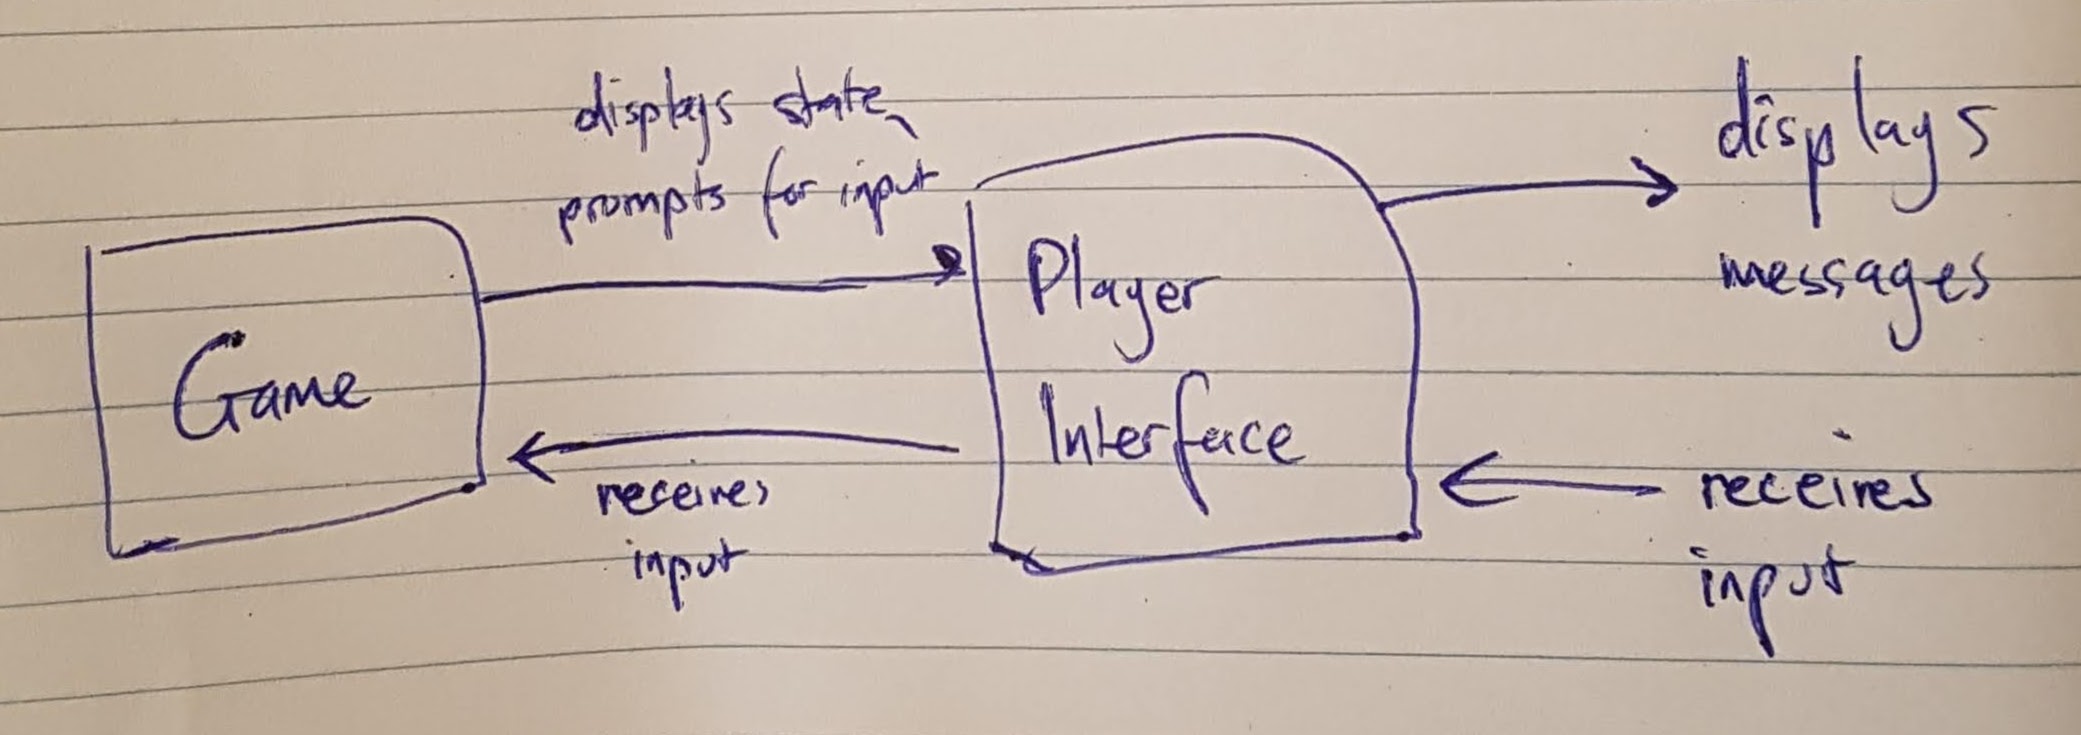 displays state,
prompts for input
Game
receives
input
Player
Interface
displays
messages
receives
input